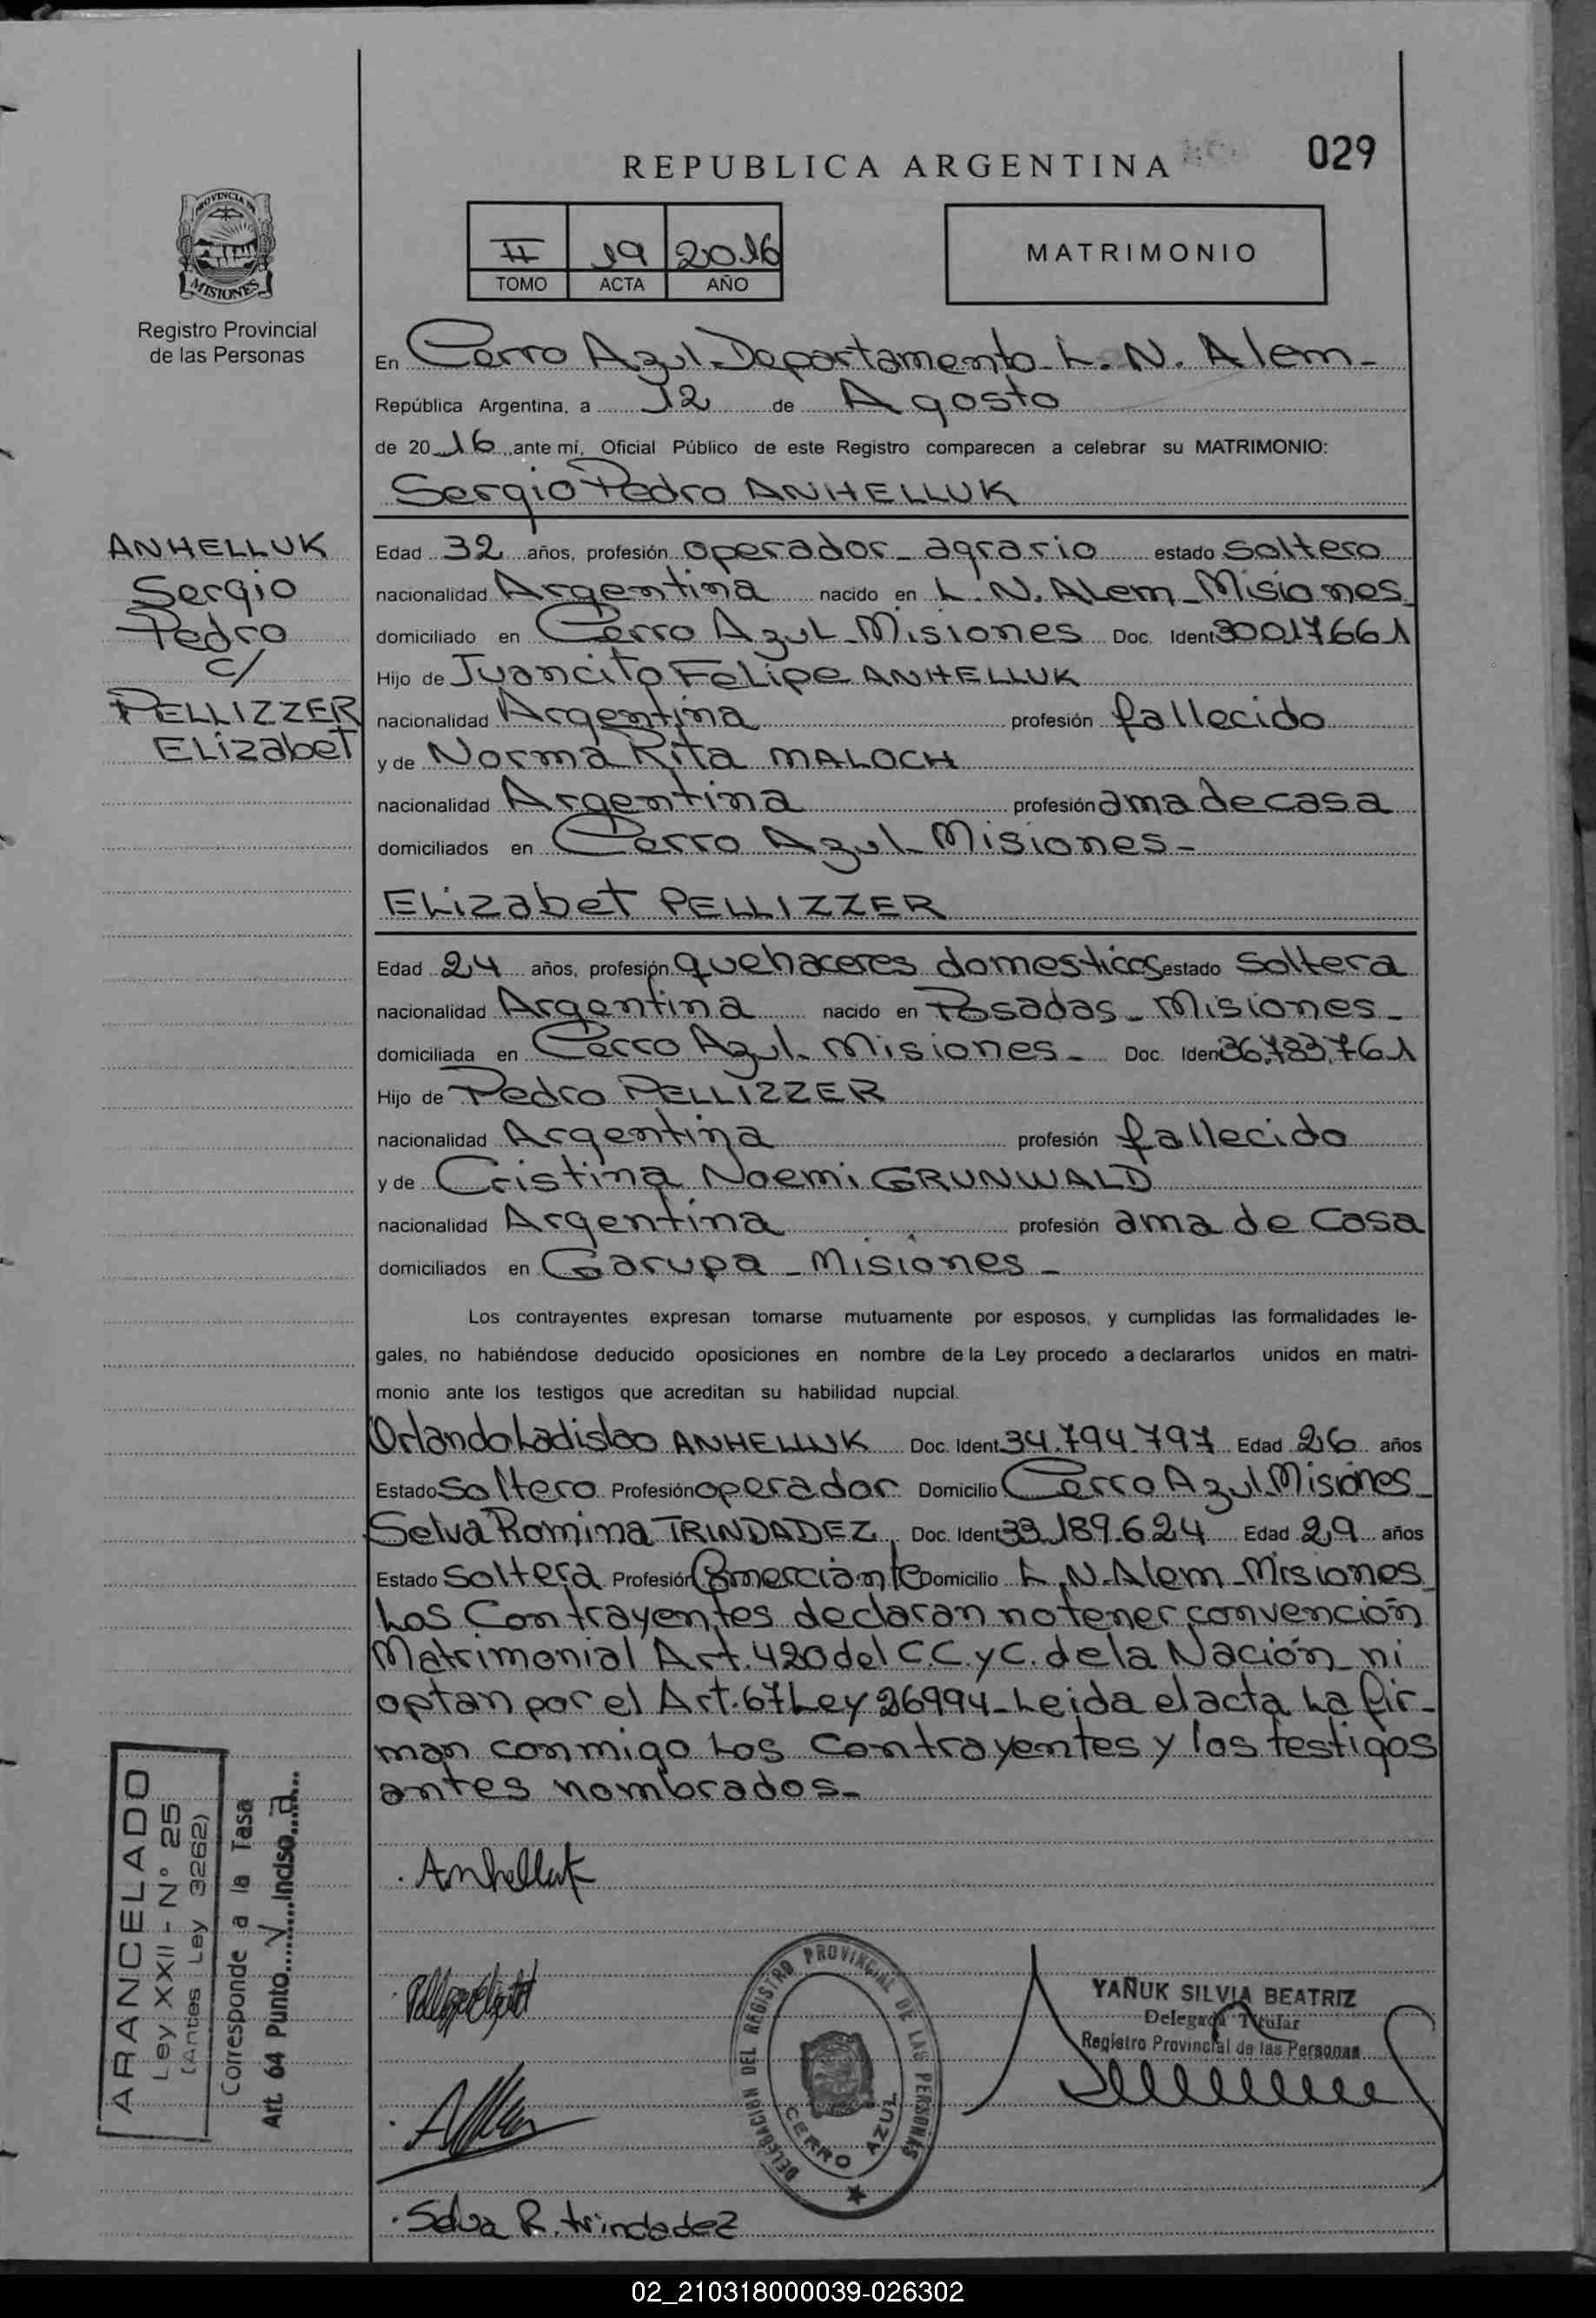 REPUBLICA ARGENTINA
029
PROVINCIA DE
MISIONES
Registro Provincial
de las Personas
II 19 2016
TOMO ACTA AÑO
MATRIMONIO
En Cerro Azul-Departamento-L.N. Alem-
República Argentina, a 12 de Agosto
de 2016, ante mí, Oficial Público de este Registro comparecen a celebrar su MATRIMONIO:
Sergio Pedro ANHELLUK
ANHELLUK
Sergio
Pedro
c/
PELLIZZER
Elizabet
Edad 32 años, profesión operador agrario estado soltero
nacionalidad Argentina nacido en L.N. Alem-Misiones
domiciliado en Cerro Azul-Misiones Doc. Ident 30017661
Hijo de Juancito Felipe ANHELLUK
nacionalidad Argentina profesión fallecido
y de Norma Rita MALOCH
nacionalidad Argentina profesión ama de casa
domiciliados en Cerro Azul-Misiones-
Elizabet PELLIZZER
Edad 24 años, profesión quehaceres domesticos estado soltera
nacionalidad Argentina nacido en Posadas-Misiones-
domiciliada en Cerro Azul-Misiones- Doc. Iden 36.783.761
Hijo de Pedro PELLIZZER
nacionalidad Argentina profesión fallecido
y de Cristina Noemi GRUNWALD
nacionalidad Argentina profesión ama de casa
domiciliados en Garupa-Misiones-
Los contrayentes expresan tomarse mutuamente por esposos, y cumplidas las formalidades le-
gales, no habiéndose deducido oposiciones en nombre de la Ley procedo a declararlos unidos en matri-
monio ante los testigos que acreditan su habilidad nupcial.
Orlando Ladislao ANHELLUK Doc. Ident. 34.794.797 Edad 26 años
Estado soltero Profesión operador Domicilio Cerro Azul-Misiones-
Selva Romina TRINDADEZ Doc. Ident 33.189.624 Edad 29 años
Estado soltera Profesión Comerciante Domicilio L.N.Alem-Misiones
Los Contrayentes declaran no tener convención
Matrimonial Art. 420 del C.C.yC. de la Nación ni
optan por el Art. 67 Ley 26994-Leida el acta La fir-
man conmigo Los Contrayentes y los testigos
antes nombrados-
ARANCELADO
Ley XXII - N° 25
(Antes Ley 3262)
Corresponde a la Tasa
Art. 64 Punto V Inciso a
Anhelluk
DELEGACIÓN DEL REGISTRO PROVINCIAL DE LAS PERSONAS
CERRO AZUL
YAÑUK SILVIA BEATRIZ
Delegada Titular
Registro Provincial de las Personas
Selva R. trindadez
02_210318000039-026302